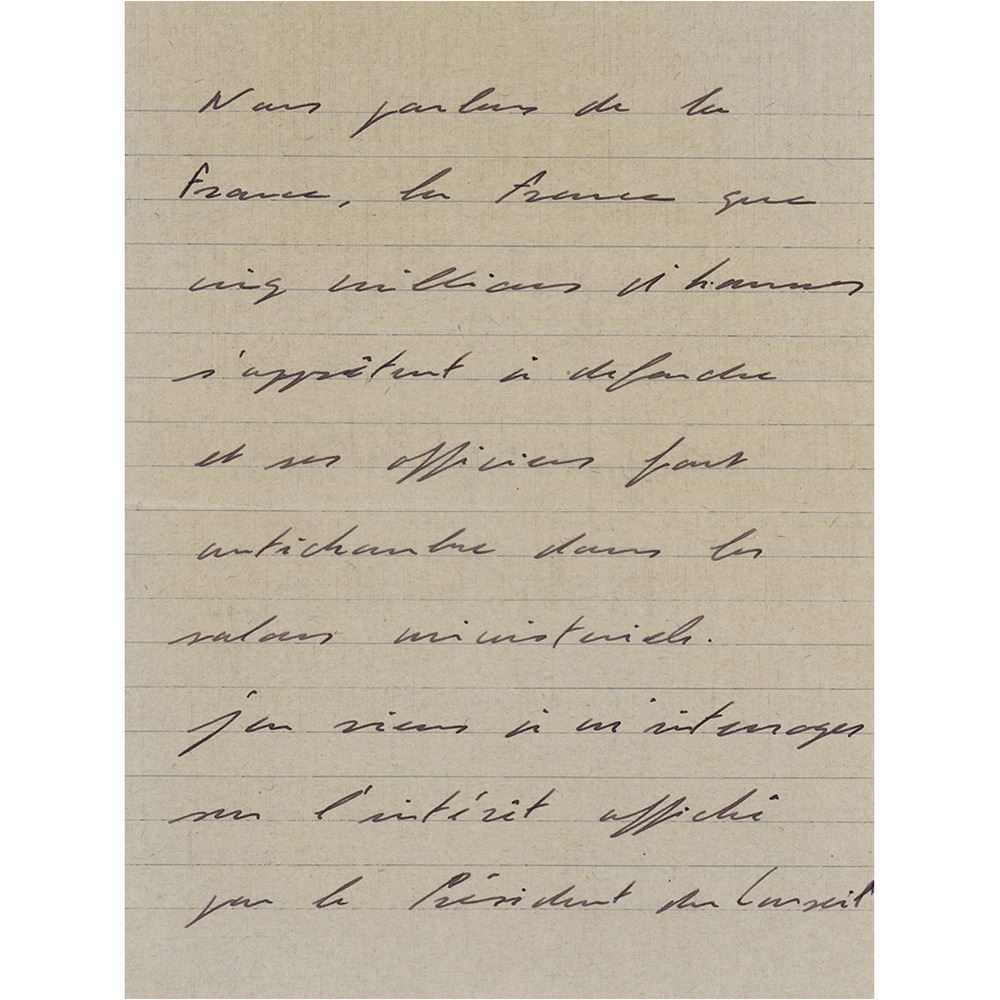 Nous parlons de la
France, la France que
cinq millions d'hommes
s'apprêtent à défendre
et ses officiers font
antichambre dans les
salons ministériels.
j'en viens à m'interroger
sur l'intérêt affiché
par le Président du Conseil